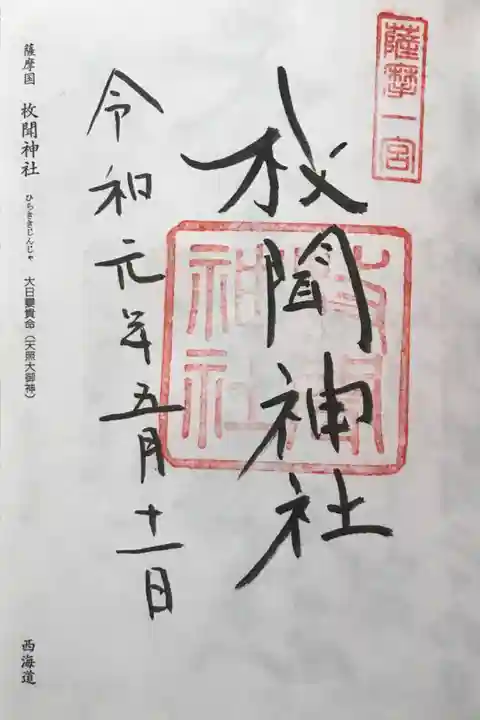 薩摩一宮
枚聞神社
枚聞神社
令和元年五月十一日
薩摩国 枚聞神社 ひらききじんじゃ 大日孁貴命（天照大御神）
西海道